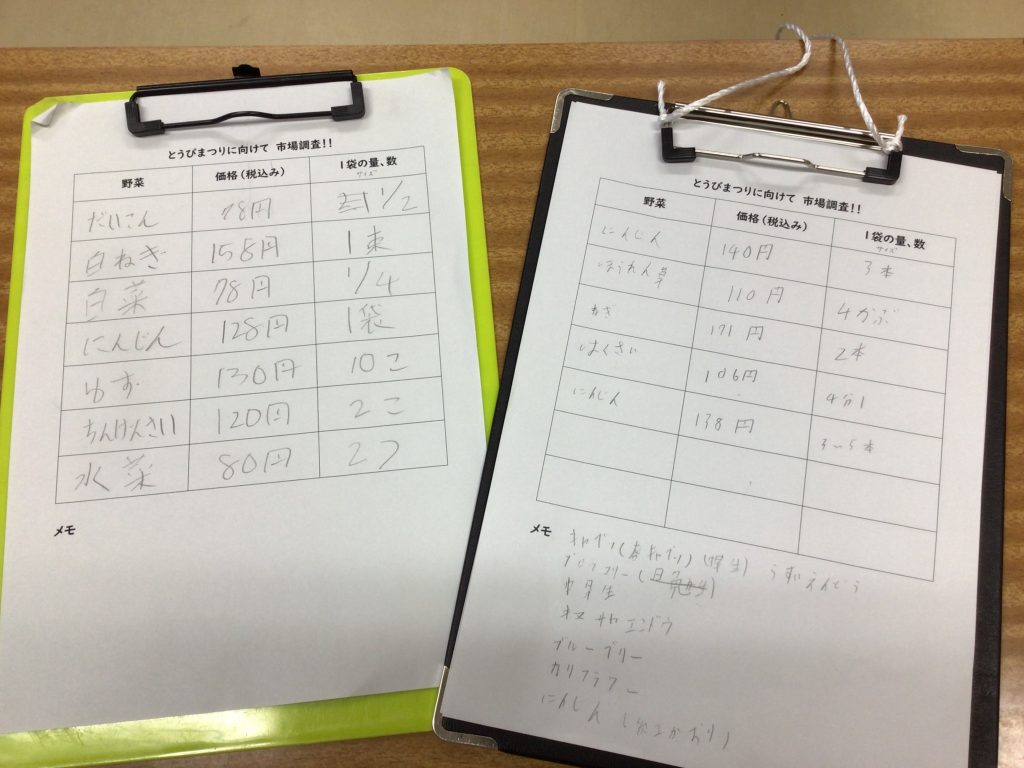 とうびまつりに向けて 市場調査!!
野菜 価格(税込み) 1袋の量、数
サイズ
だいこん 78円 1/2
白ねぎ 158円 1束
白菜 78円 1/4
にんじん 128円 1袋
ゆず 130円 10こ
ちんげんさい 120円 2こ
水菜 80円 2つ
メモ
とうびまつりに向けて 市場調査!!
野菜 価格(税込み) 1袋の量、数
サイズ
にんじん 140円 3本
ほうれん草 110円 4かぶ
ねぎ 171円 2本
はくさい 106円 4分1
にんじん 138円 3~5本
メモ
キャベツ(春キャベツ) うすいえんどう
ブロッコリー
キヌサヤエンドウ
ブルーブリー
カリフラワー
にんじん